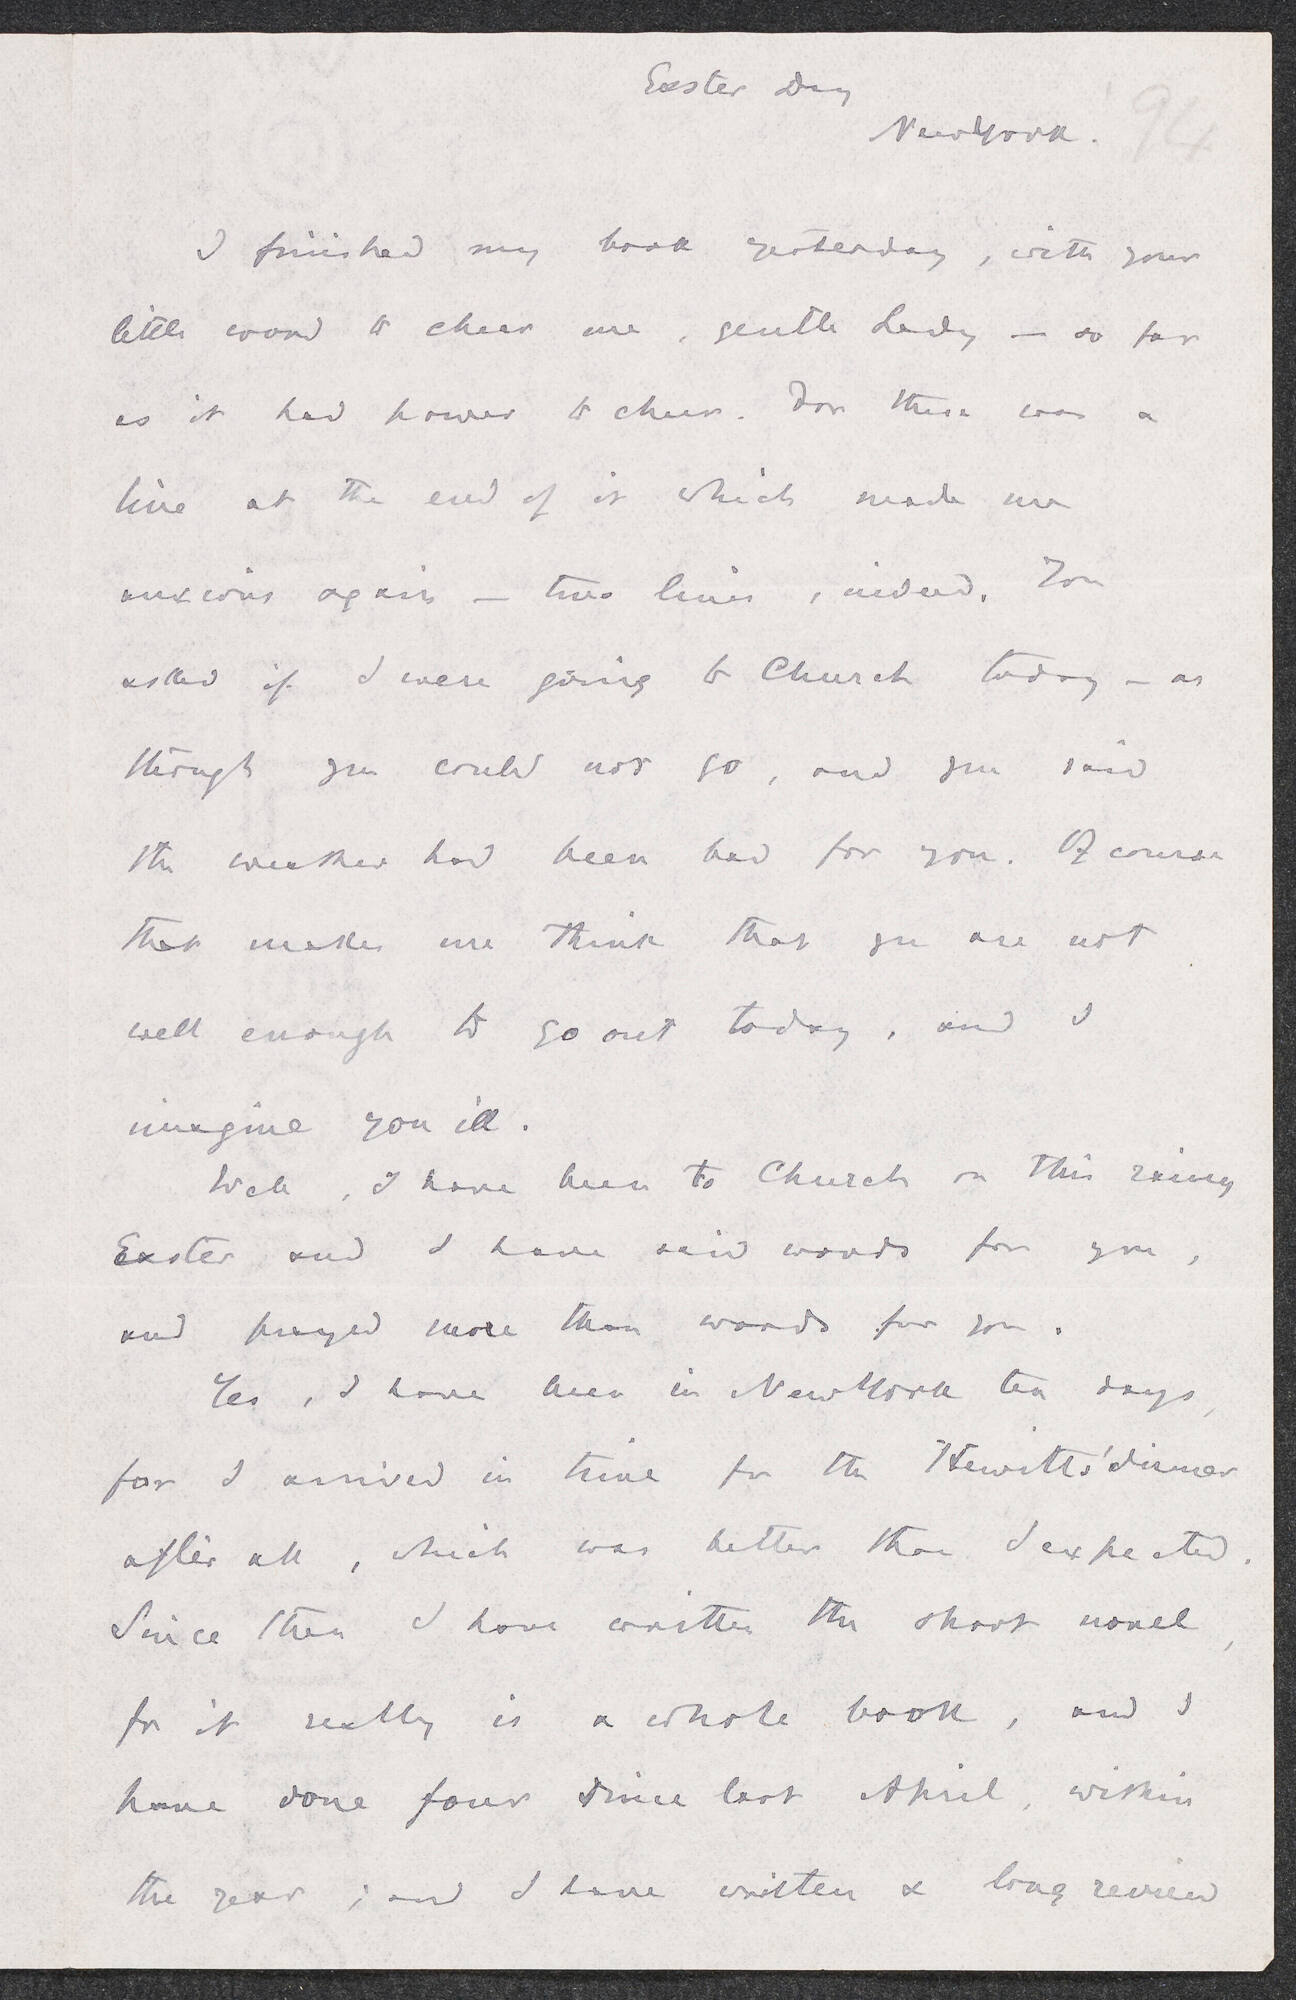 Easter Day
New York.
94
I finished my book yesterday, with your
little word to cheer me, gentle Lady — so far
as it had power to cheer. For there was a
line at the end of it which made me
anxious again — two lines, indeed. You
asked if I were going to Church today — as
though you could not go, and you said
the weather had been bad for you. Of course
that makes me think that you are not
well enough to go out today, and I
imagine you ill.
Well, I have been to Church on this rainy
Easter and I have said words for you,
and prayed more than words for you.
Yes, I have been in New York ten days,
for I arrived in time for the Hewitts' dinner
after all, which was better than I expected.
Since then I have written the short novel,
for it really is a whole book, and I
have done four since last April, within
the year; and I have written a long review